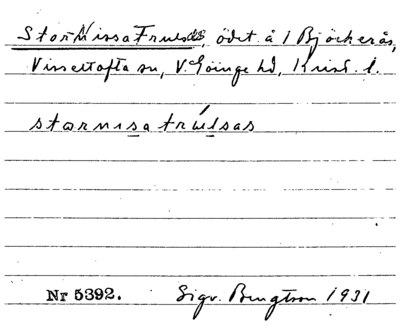 StorNissaTruls, ödet. å 1 Björkerås,
Visseltofta sn, V. Göinge hd, Krist. l.
stornisa trúlsas
Nr 5392. Sigv. Bengtson 1931